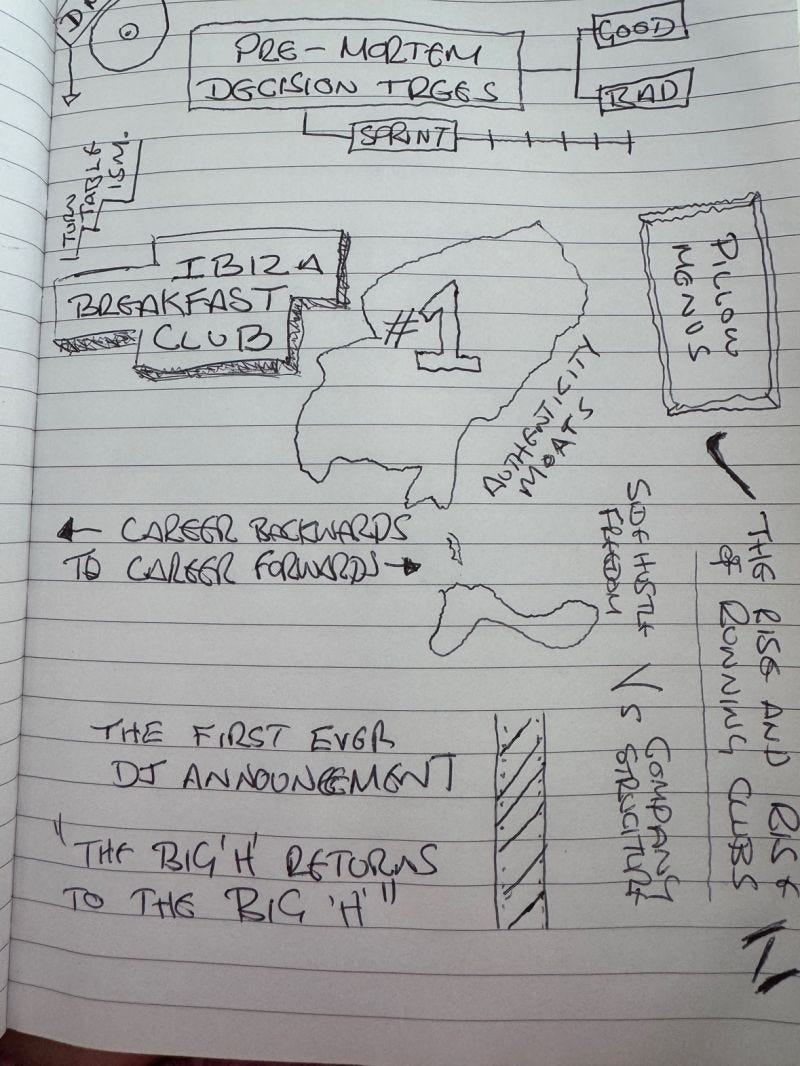 PRE-MORTEM
DECISION TREES
GOOD
BAD
SPRINT
TURN
TABLE
ISM.
IBIZA
BREAKFAST
CLUB
#1
AUTHENTICITY
MOATS
PILLOW
MENUS
← CAREER BACKWARDS
TO CAREER FORWARDS →
SIDE HUSTLE
FREEDOM
VS
COMPANY
STRICITURE
THE RISE AND RISE
OF RUNNING CLUBS
THE FIRST EVER
DJ ANNOUNCEMENT
"THE BIG 'H' RETURNS
TO THE BIG 'H'"